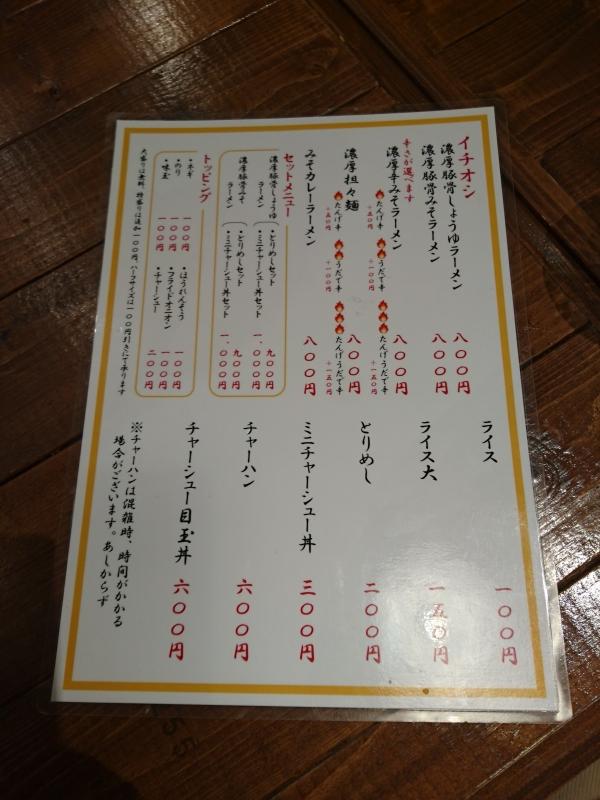 イチオシ
濃厚豚骨しょうゆラーメン 八〇〇円
濃厚豚骨みそラーメン 八〇〇円
辛さが選べます
濃厚辛みそラーメン 八〇〇円
🔥たんげ辛 +五〇円
🔥🔥うだで辛 +一〇〇円
🔥🔥🔥たんげうだで辛 +一五〇円
濃厚担々麺 八〇〇円
🔥たんげ辛 +五〇円
🔥🔥うだで辛 +一〇〇円
🔥🔥🔥たんげうだで辛 +一五〇円
みそカレーラーメン 八〇〇円
セットメニュー
濃厚豚骨しょうゆラーメン
・とりめしセット 九〇〇円
・ミニチャーシュー丼セット 一、〇〇〇円
濃厚豚骨みそラーメン
・とりめしセット 九〇〇円
・ミニチャーシュー丼セット 一、〇〇〇円
トッピング
・ネギ 一〇〇円
・のり 一〇〇円
・味玉 一〇〇円
・ほうれんそう 一〇〇円
・フライドオニオン 一〇〇円
・チャーシュー 二〇〇円
大盛りは無料、特盛りは追加一〇〇円、ハーフサイズは一〇〇円引きにて承ります
ライス 一〇〇円
ライス大 一五〇円
とりめし 二〇〇円
ミニチャーシュー丼 三〇〇円
チャーハン 六〇〇円
チャーシュー目玉丼 六〇〇円
※チャーハンは混雑時、時間がかかる
場合がございます。あしからず